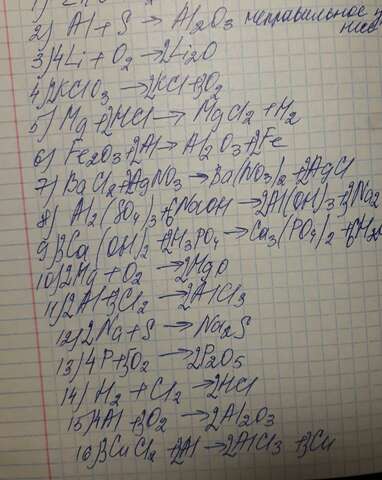 2) Al + S → Al2O3 неправильное
3) 4Li + O2 → 2Li2O
4) 2KClO3 → 2KCl + 3O2
5) Mg + 2HCl → MgCl2 + H2
6) Fe2O3 + 2Al → Al2O3 + 2Fe
7) BaCl2 + 2AgNO3 → Ba(NO3)2 + 2AgCl
8) Al2(SO4)3 + 6NaOH → 2Al(OH)3 + 3Na2
9) 3Ca(OH)2 + 2H3PO4 → Ca3(PO4)2 + 6H2O
10) 2Hg + O2 → 2HgO
11) 2Al + 3Cl2 → 2AlCl3
12) 2Na + S → Na2S
13) 4P + 5O2 → 2P2O5
14) H2 + Cl2 → 2HCl
15) 4Al + 3O2 → 2Al2O3
16) 3CuCl2 + 2Al → 2AlCl3 + 3Cu